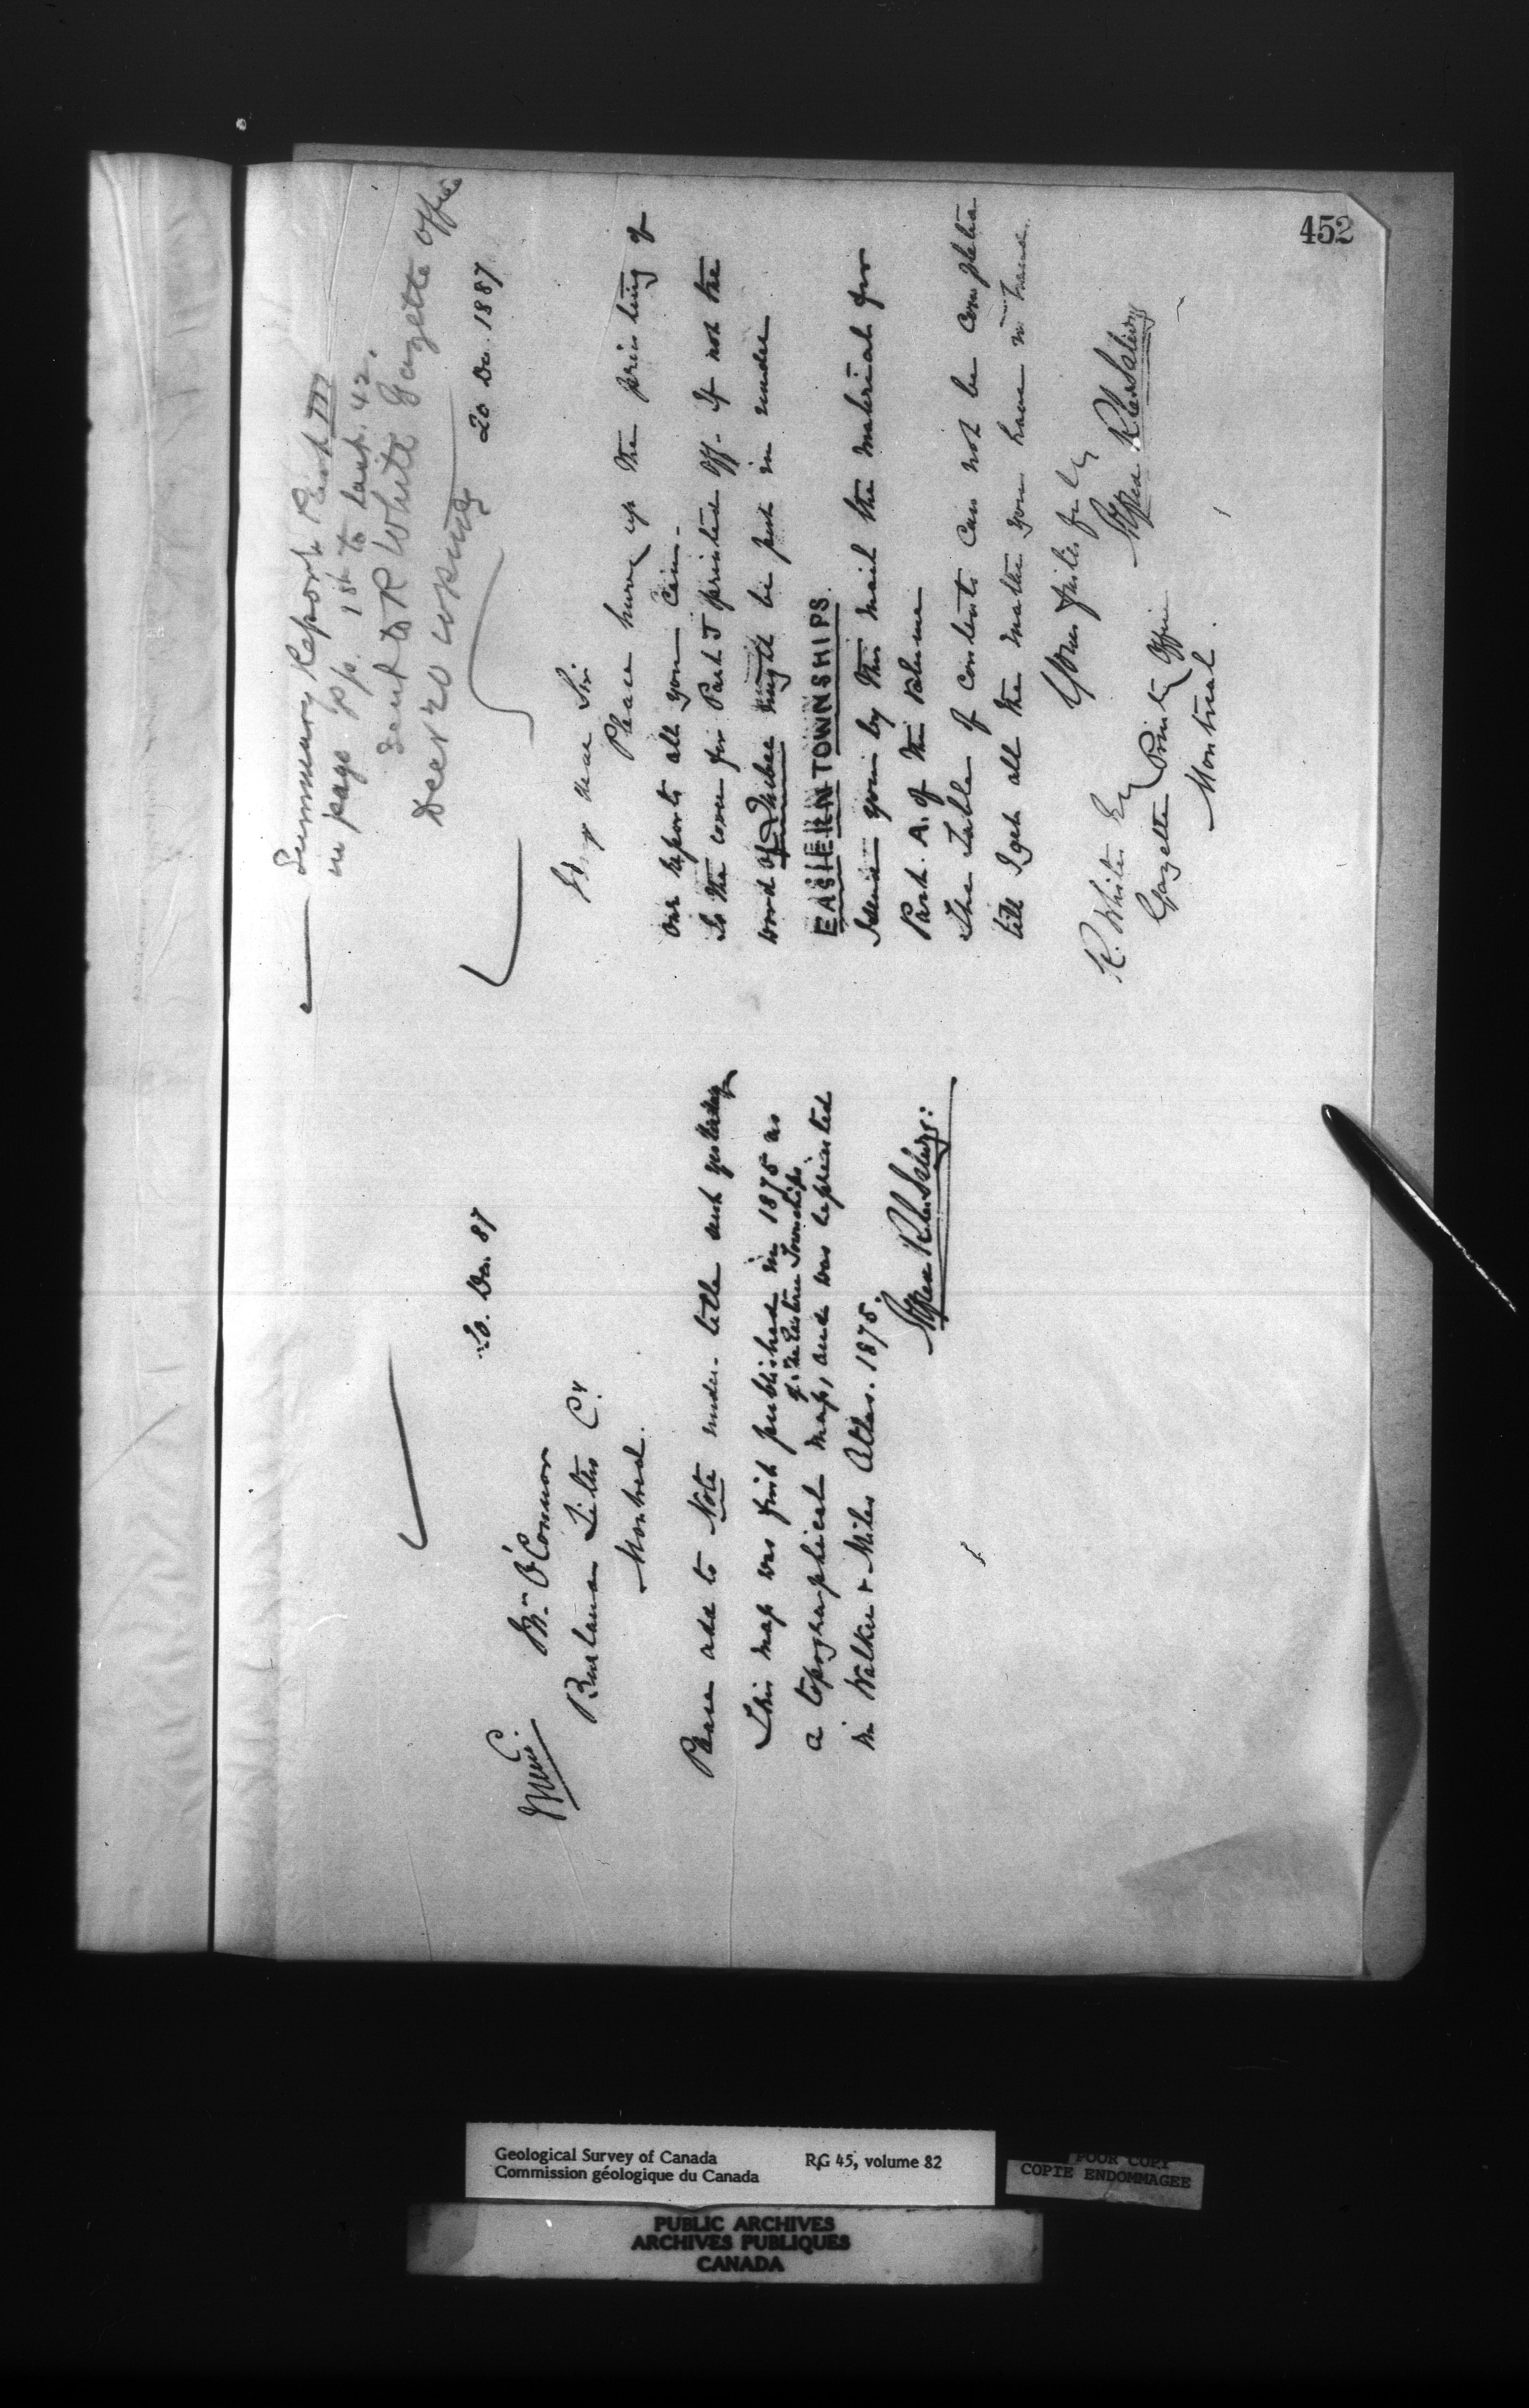 452
Summary Report Part III
in page pp. 1st to last. 42.
Sent to R White Gazette Office
Decr 20
20 Dec. 1887
My dear Sir
Please hurry up the printing of
our reports all you can.
Is the cover for Part J printed off. If not the
word of Quebec might be put in under
EASTERN TOWNSHIPS.
I send you by this mail the material for
Part. A. of the volume
The Table of contents can not be completed
till I get all the matter you have in hand.
Yours faithfully
Alfred R C Selwyn
R. White Esq
Gazette Printg Office
Montreal.
20. Dec. 87
Mr. O'Connor
Burland Litho Co.
Montreal.
Please add to Note under title sent yesterday
This map was first published in 1875 as
of the Eastern Townships
a topographical map, and was reprinted
in Walker & Miles Atlas. 1875.
Alfred R C Selwyn:
Geological Survey of Canada RG 45, volume 82
Commission géologique du Canada
POOR COPY
COPIE ENDOMMAGEE
PUBLIC ARCHIVES
ARCHIVES PUBLIQUES
CANADA